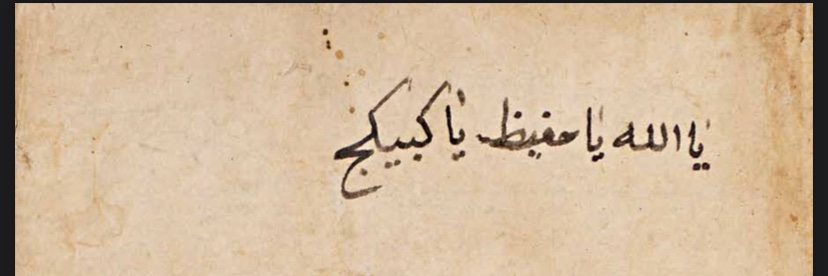 يا الله يا حفيظ يا كبيكج